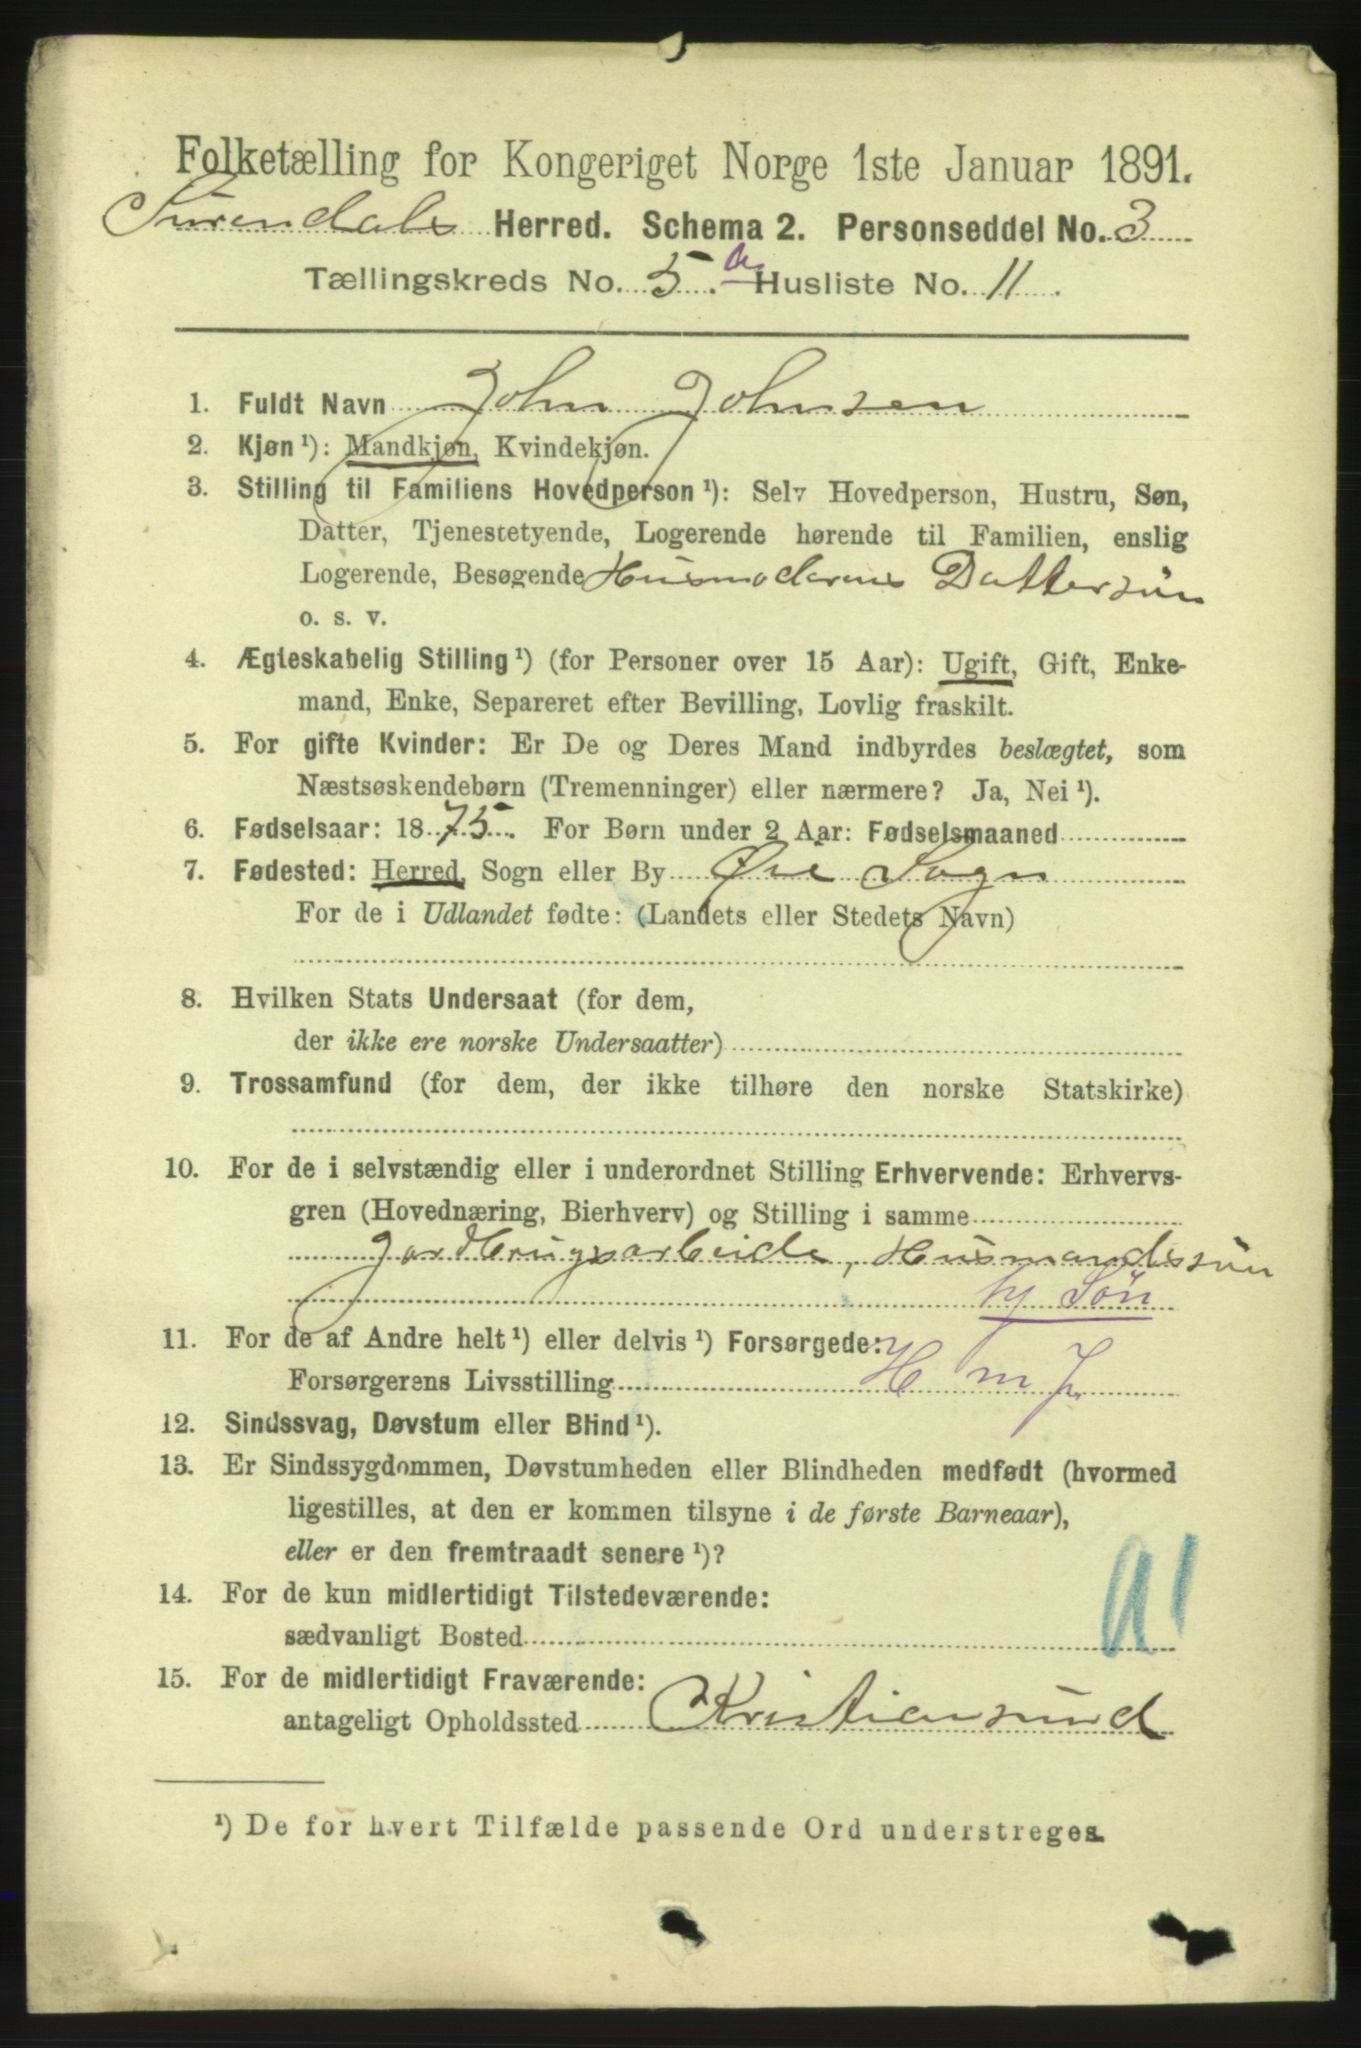 Folketælling for Kongeriget Norge 1ste Januar 1891.
Surendals Herred. Schema 2. Personseddel No. 3
Tællingskreds No. 5. a Husliste No. 11.
1. Fuldt Navn John Johnsen
2. Kjøn ¹): Mandkjøn, Kvindekjøn.
3. Stilling til Familiens Hovedperson ¹): Selv Hovedperson, Hustru, Søn,
Datter, Tjenestetyende, Logerende hørende til Familien, enslig
Logerende, Besøgende Husmoderens Dattersøn
o. s. v.
4. Ægteskabelig Stilling ¹) (for Personer over 15 Aar): Ugift, Gift, Enke-
mand, Enke, Separeret efter Bevilling, Lovlig fraskilt.
5. For gifte Kvinder: Er De og Deres Mand indbyrdes beslægtet, som
Næstsøskendebørn (Tremenninger) eller nærmere? Ja, Nei ¹).
6. Fødselsaar: 1875. For Børn under 2 Aar: Fødselsmaaned
7. Fødested: Herred, Sogn eller By Øie Sogn
For de i Udlandet fødte: (Landets eller Stedets Navn)
8. Hvilken Stats Undersaat (for dem,
der ikke ere norske Undersaatter)
9. Trossamfund (for dem, der ikke tilhøre den norske Statskirke)
10. For de i selvstændig eller i underordnet Stilling Erhvervende: Erhvervs-
gren (Hovednæring, Bierhverv) og Stilling i samme
Jordbrugsarbeide, Husmandssøn
Søn
11. For de af Andre helt ¹) eller delvis ¹) Forsørgede:
Forsørgerens Livsstilling H m J.
12. Sindssvag, Døvstum eller Blind ¹).
13. Er Sindssygdommen, Døvstumheden eller Blindheden medfødt (hvormed
ligestilles, at den er kommen tilsyne i de første Barneaar),
eller er den fremtraadt senere ¹)?
14. For de kun midlertidigt Tilstedeværende:
sædvanligt Bosted
15. For de midlertidigt Fraværende:
antageligt Opholdssted Kristiansund
¹) De for hvert Tilfælde passende Ord understreges.